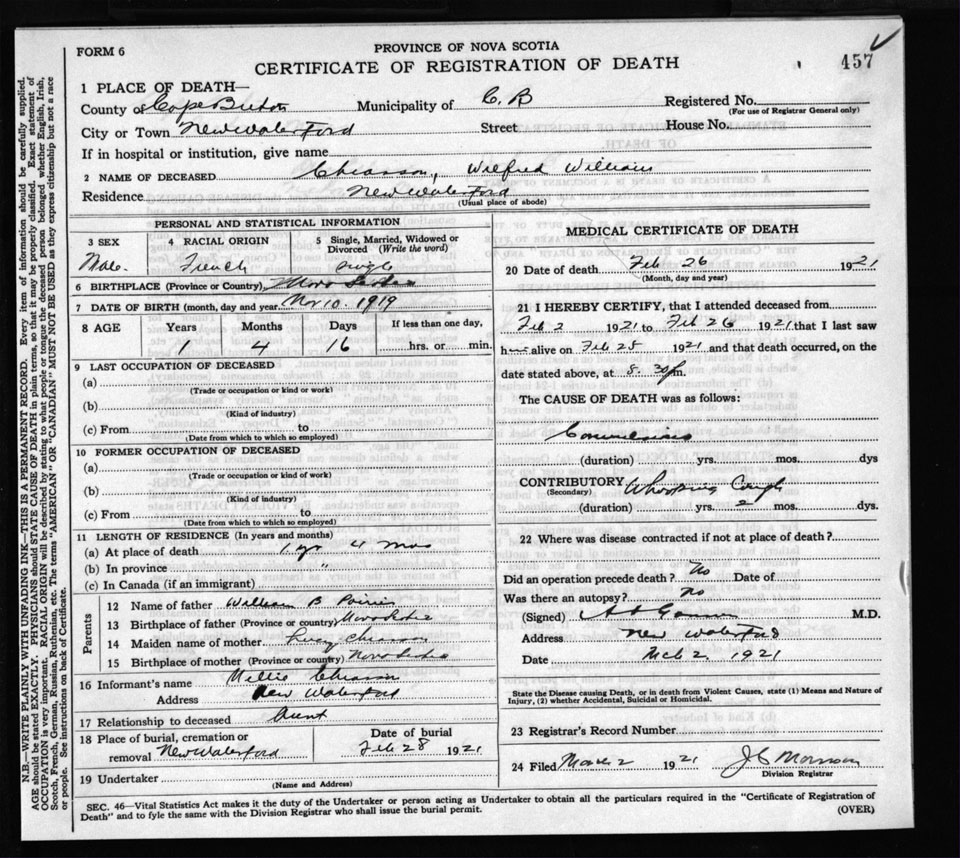 FORM 6
PROVINCE OF NOVA SCOTIA
CERTIFICATE OF REGISTRATION OF DEATH
457
1 PLACE OF DEATH—
County of Cape Breton Municipality of C. B Registered No.
(For use of Registrar General only)
City or Town New Waterford Street House No.
If in hospital or institution, give name
2 NAME OF DECEASED Chiasson, Wilfred William
Residence New Waterford
(Usual place of abode)
PERSONAL AND STATISTICAL INFORMATION
3 SEX 4 RACIAL ORIGIN 5 Single, Married, Widowed or Divorced (Write the word)
Male. French Single
6 BIRTHPLACE (Province or Country) Nova Scotia
7 DATE OF BIRTH (month, day and year) Nov 10. 1919
8 AGE Years Months Days If less than one day,
1 4 16 hrs. or min.
9 LAST OCCUPATION OF DECEASED
(a)
(Trade or occupation or kind or work)
(b)
(Kind of industry)
(c) From to
(Date from which to which so employed)
10 FORMER OCCUPATION OF DECEASED
(a)
(Trade or occupation or kind of work)
(b)
(Kind of industry)
(c) From to
(Date from which to which so employed)
11 LENGTH OF RESIDENCE (In years and months)
(a) At place of death 1 yr 4 mos
(b) In province "
(c) In Canada (if an immigrant)
Parents
12 Name of father William B Poirier
13 Birthplace of father (Province or country) Nova Scotia
14 Maiden name of mother Chiasson
15 Birthplace of mother (Province or country) Nova Scotia
16 Informant's name Chiasson
Address New Waterford
17 Relationship to deceased Aunt
18 Place of burial, cremation or removal New Waterford Date of burial Feb 28 1921
19 Undertaker
(Name and Address)
MEDICAL CERTIFICATE OF DEATH
20 Date of death Feb 26 1921
(Month, day and year)
21 I HEREBY CERTIFY, that I attended deceased from
Feb 2 1921 to Feb 26 1921 that I last saw
h alive on Feb 25 1921 and that death occurred, on the
date stated above, at 8.30 p m.
The CAUSE OF DEATH was as follows:
Convulsions
(duration) yrs. mos. dys
CONTRIBUTORY Whooping Cough
(Secondary)
(duration) yrs. 2 mos. dys.
22 Where was disease contracted if not at place of death?
Did an operation precede death? No Date of
Was there an autopsy? No
(Signed) M.D.
Address New Waterford
Date Mch 2 1921
State the Disease causing Death, or in death from Violent Causes, state (1) Means and Nature of
Injury, (2) whether Accidental, Suicidal or Homicidal.
23 Registrar's Record Number
24 Filed March 2 1921 J C Morrison
Division Registrar
SEC. 46—Vital Statistics Act makes it the duty of the Undertaker or person acting as Undertaker to obtain all the particulars required in the "Certificate of Registration of
Death" and to fyle the same with the Division Registrar who shall issue the burial permit. (OVER)
N.B.—WRITE PLAINLY WITH UNFADING INK—THIS IS A PERMANENT RECORD. Every item of information should be carefully supplied.
AGE should be stated EXACTLY. PHYSICIANS should STATE CAUSE OF DEATH in plain terms, so that it may be properly classified. Exact statement of
OCCUPATION is very important. RACIAL ORIGIN will be described by stating to what people or tongue the deceased person belonged whether English, Irish,
Scotch, French, German, Russian, Ruthenian, etc. The terms "AMERICAN" OR "CANADIAN" MUST NOT BE USED as they express citizenship but not a race
or people. See instructions on back of Certificate.